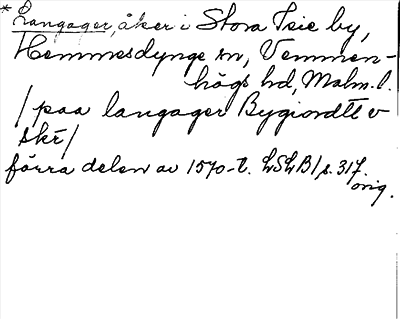 * Langager, åker i Stora Isie by,
Hemmesdynge sn, Vemmen-
högs hd, Malm. l.
/ paa langager Bygiordtt v
skr /
förra delen av 1570-t. LSLB 1 s. 317.
orig.